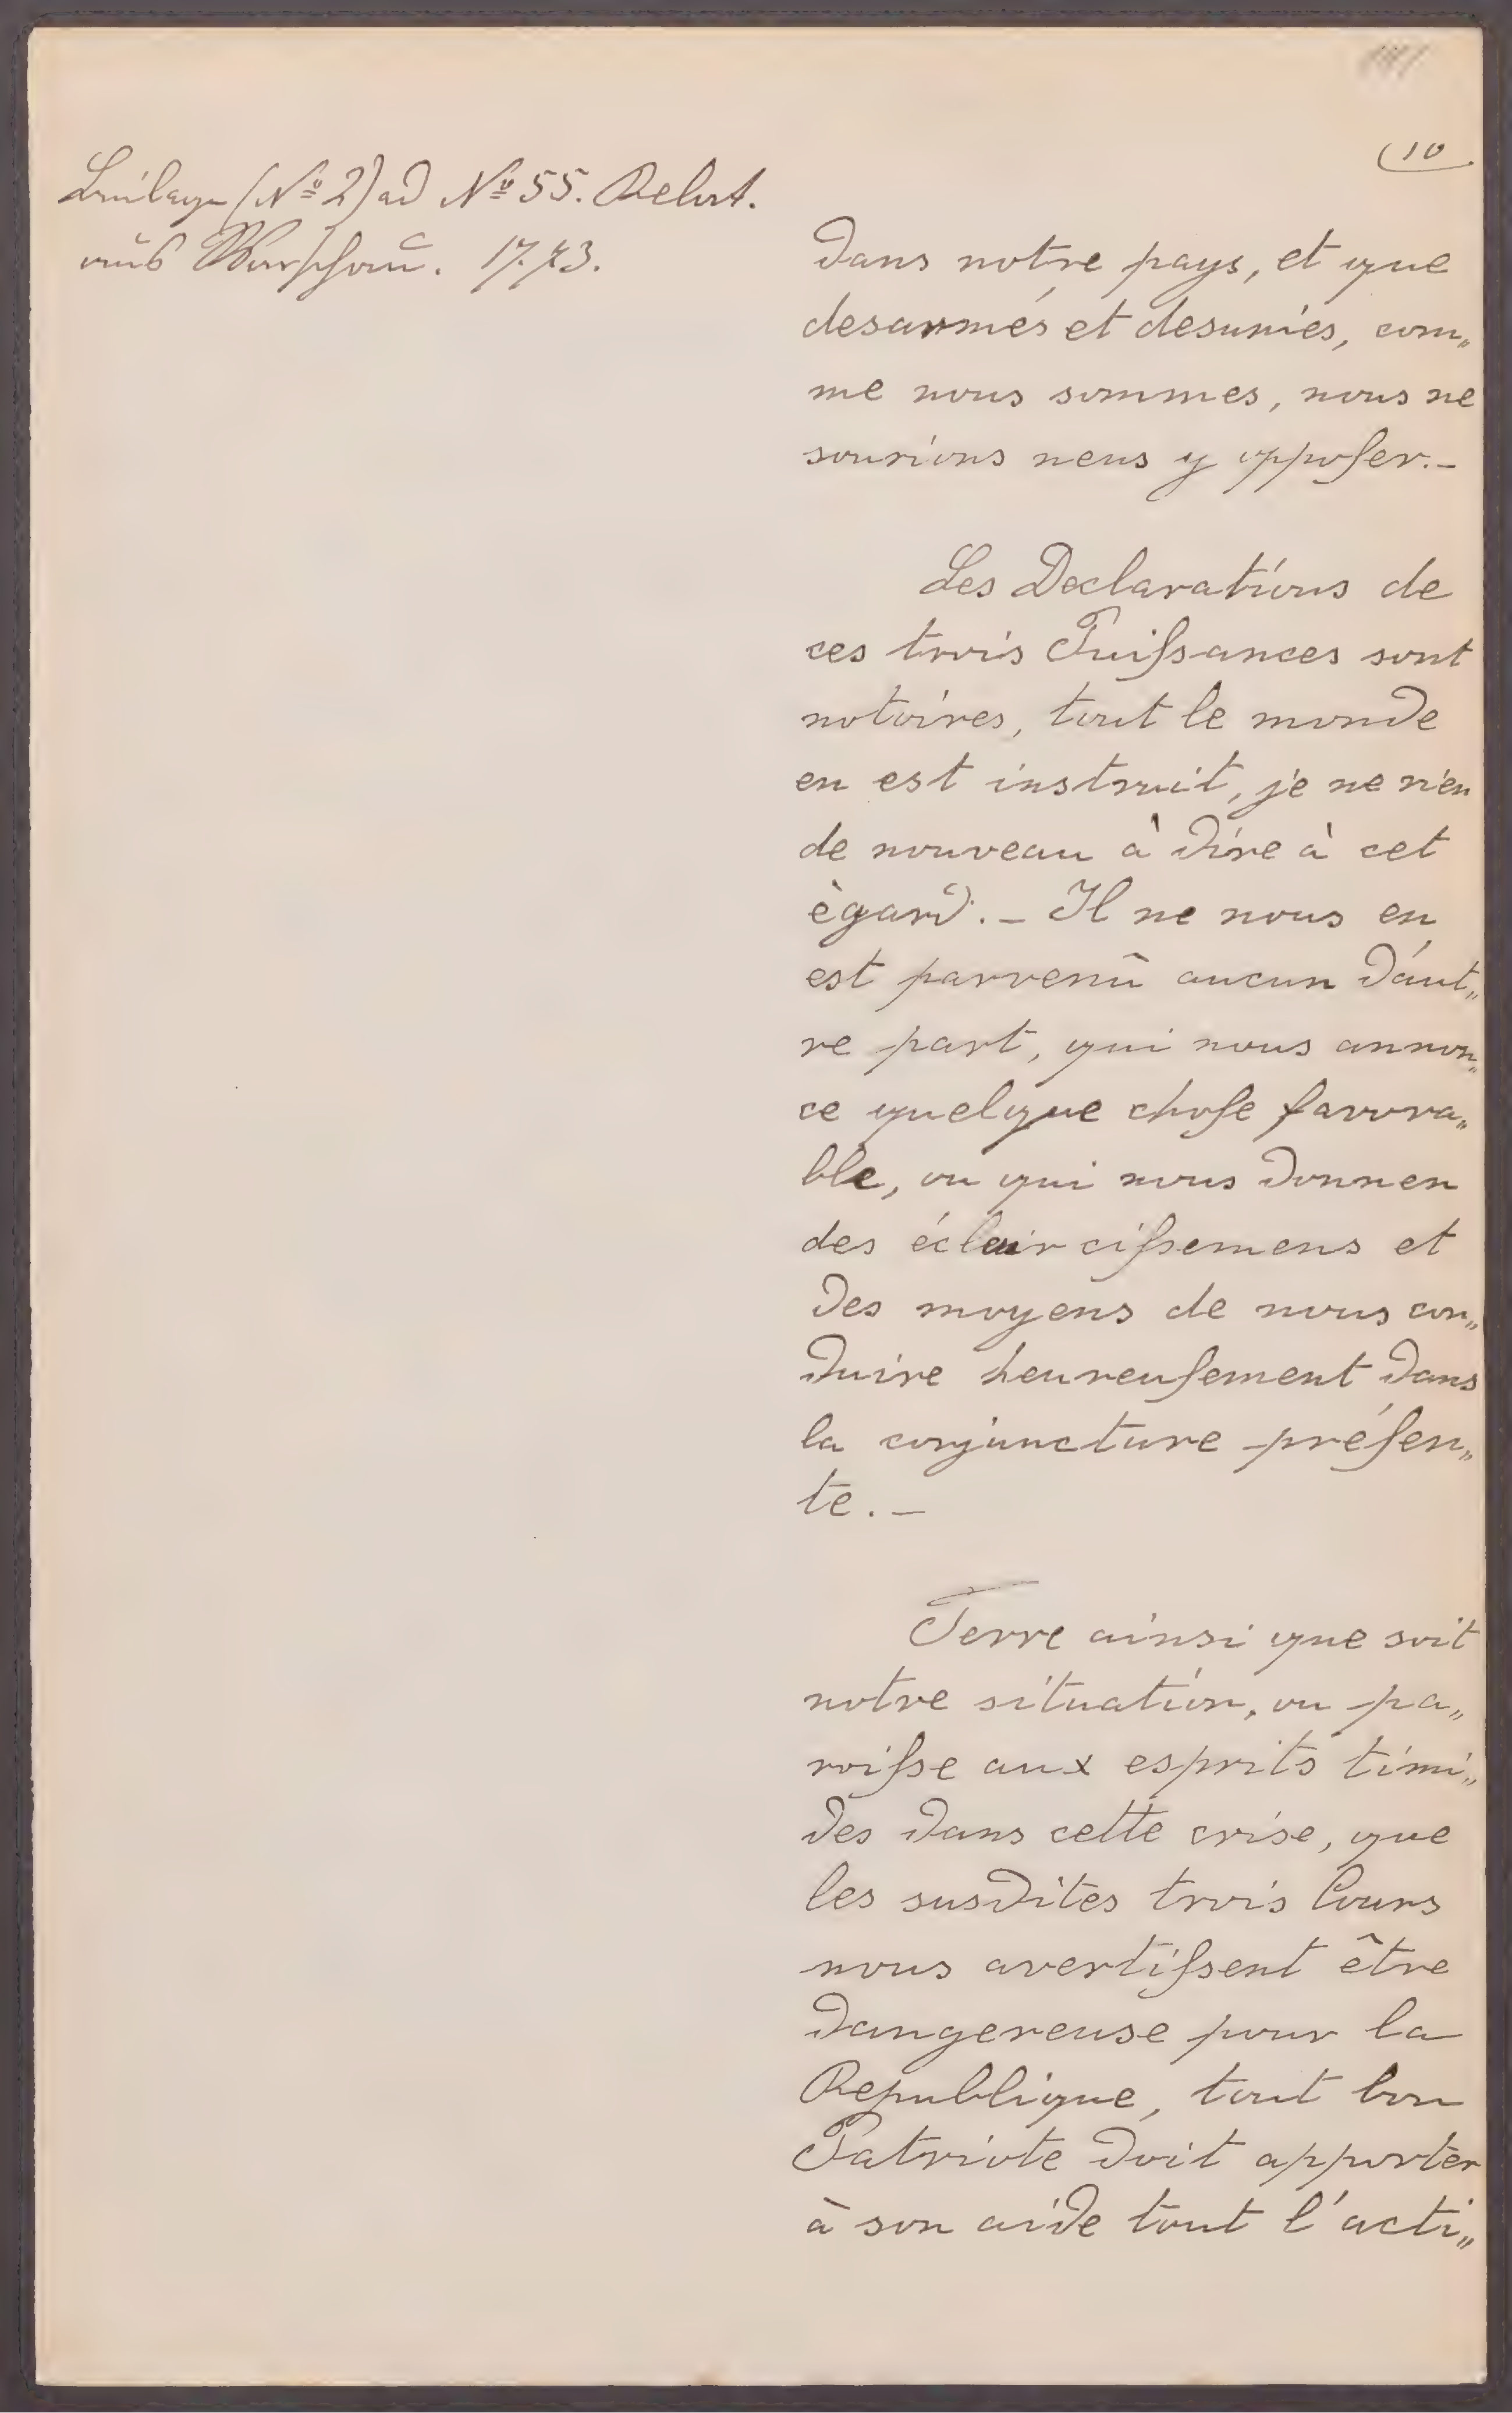 (10
Beilage (Nº 2) ad Nº 55. Relat.
aus Warschau. 1773.
dans notre pays, et que
desarmés et desunies, com„
me nous sommes, nous ne
sourions neus y opposer.-
Les Declarations de
ces trois Puissances sont
notoires, tout le monde
en est instruit, je ne rien
de nouveau à dire à cet
ègard.- Il ne nous en
est parvenû aucun d'aut„
re part, qui nous annon„
ce quelque chose favora„
ble, ou qui nous donnen
des éclaircissemens et
des moyens de nous con„
duire heureusement dans
la conjuncture présen„
te.-
Terre ainsi que soit
notre situation, ou pa„
roisse aux esprits timi„
des dans cette crise, que
les susdites trois Cours
nous avertissent être
dangereuse pour la
Republique, tout bon
Patriote doit apporter
à son aide tout l'acti„